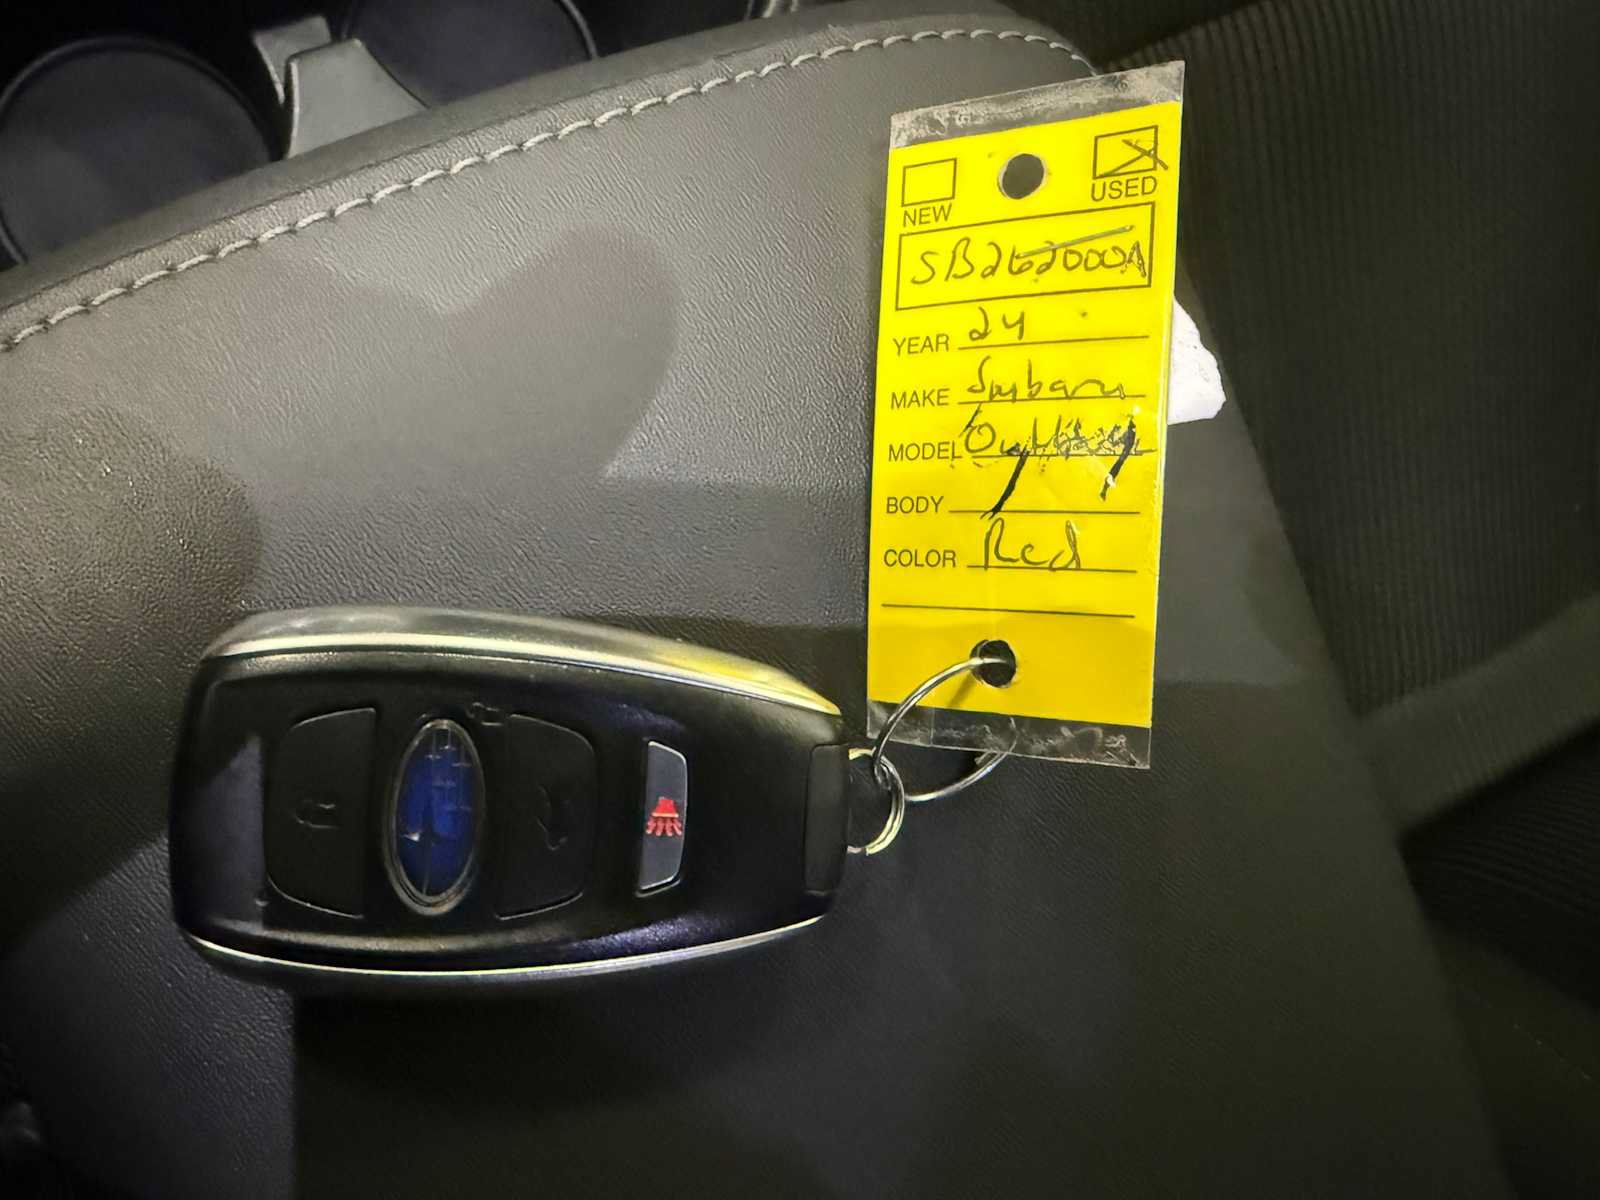 NEW USED
SB262000A
YEAR 24
MAKE Subaru
MODEL
BODY
COLOR Red